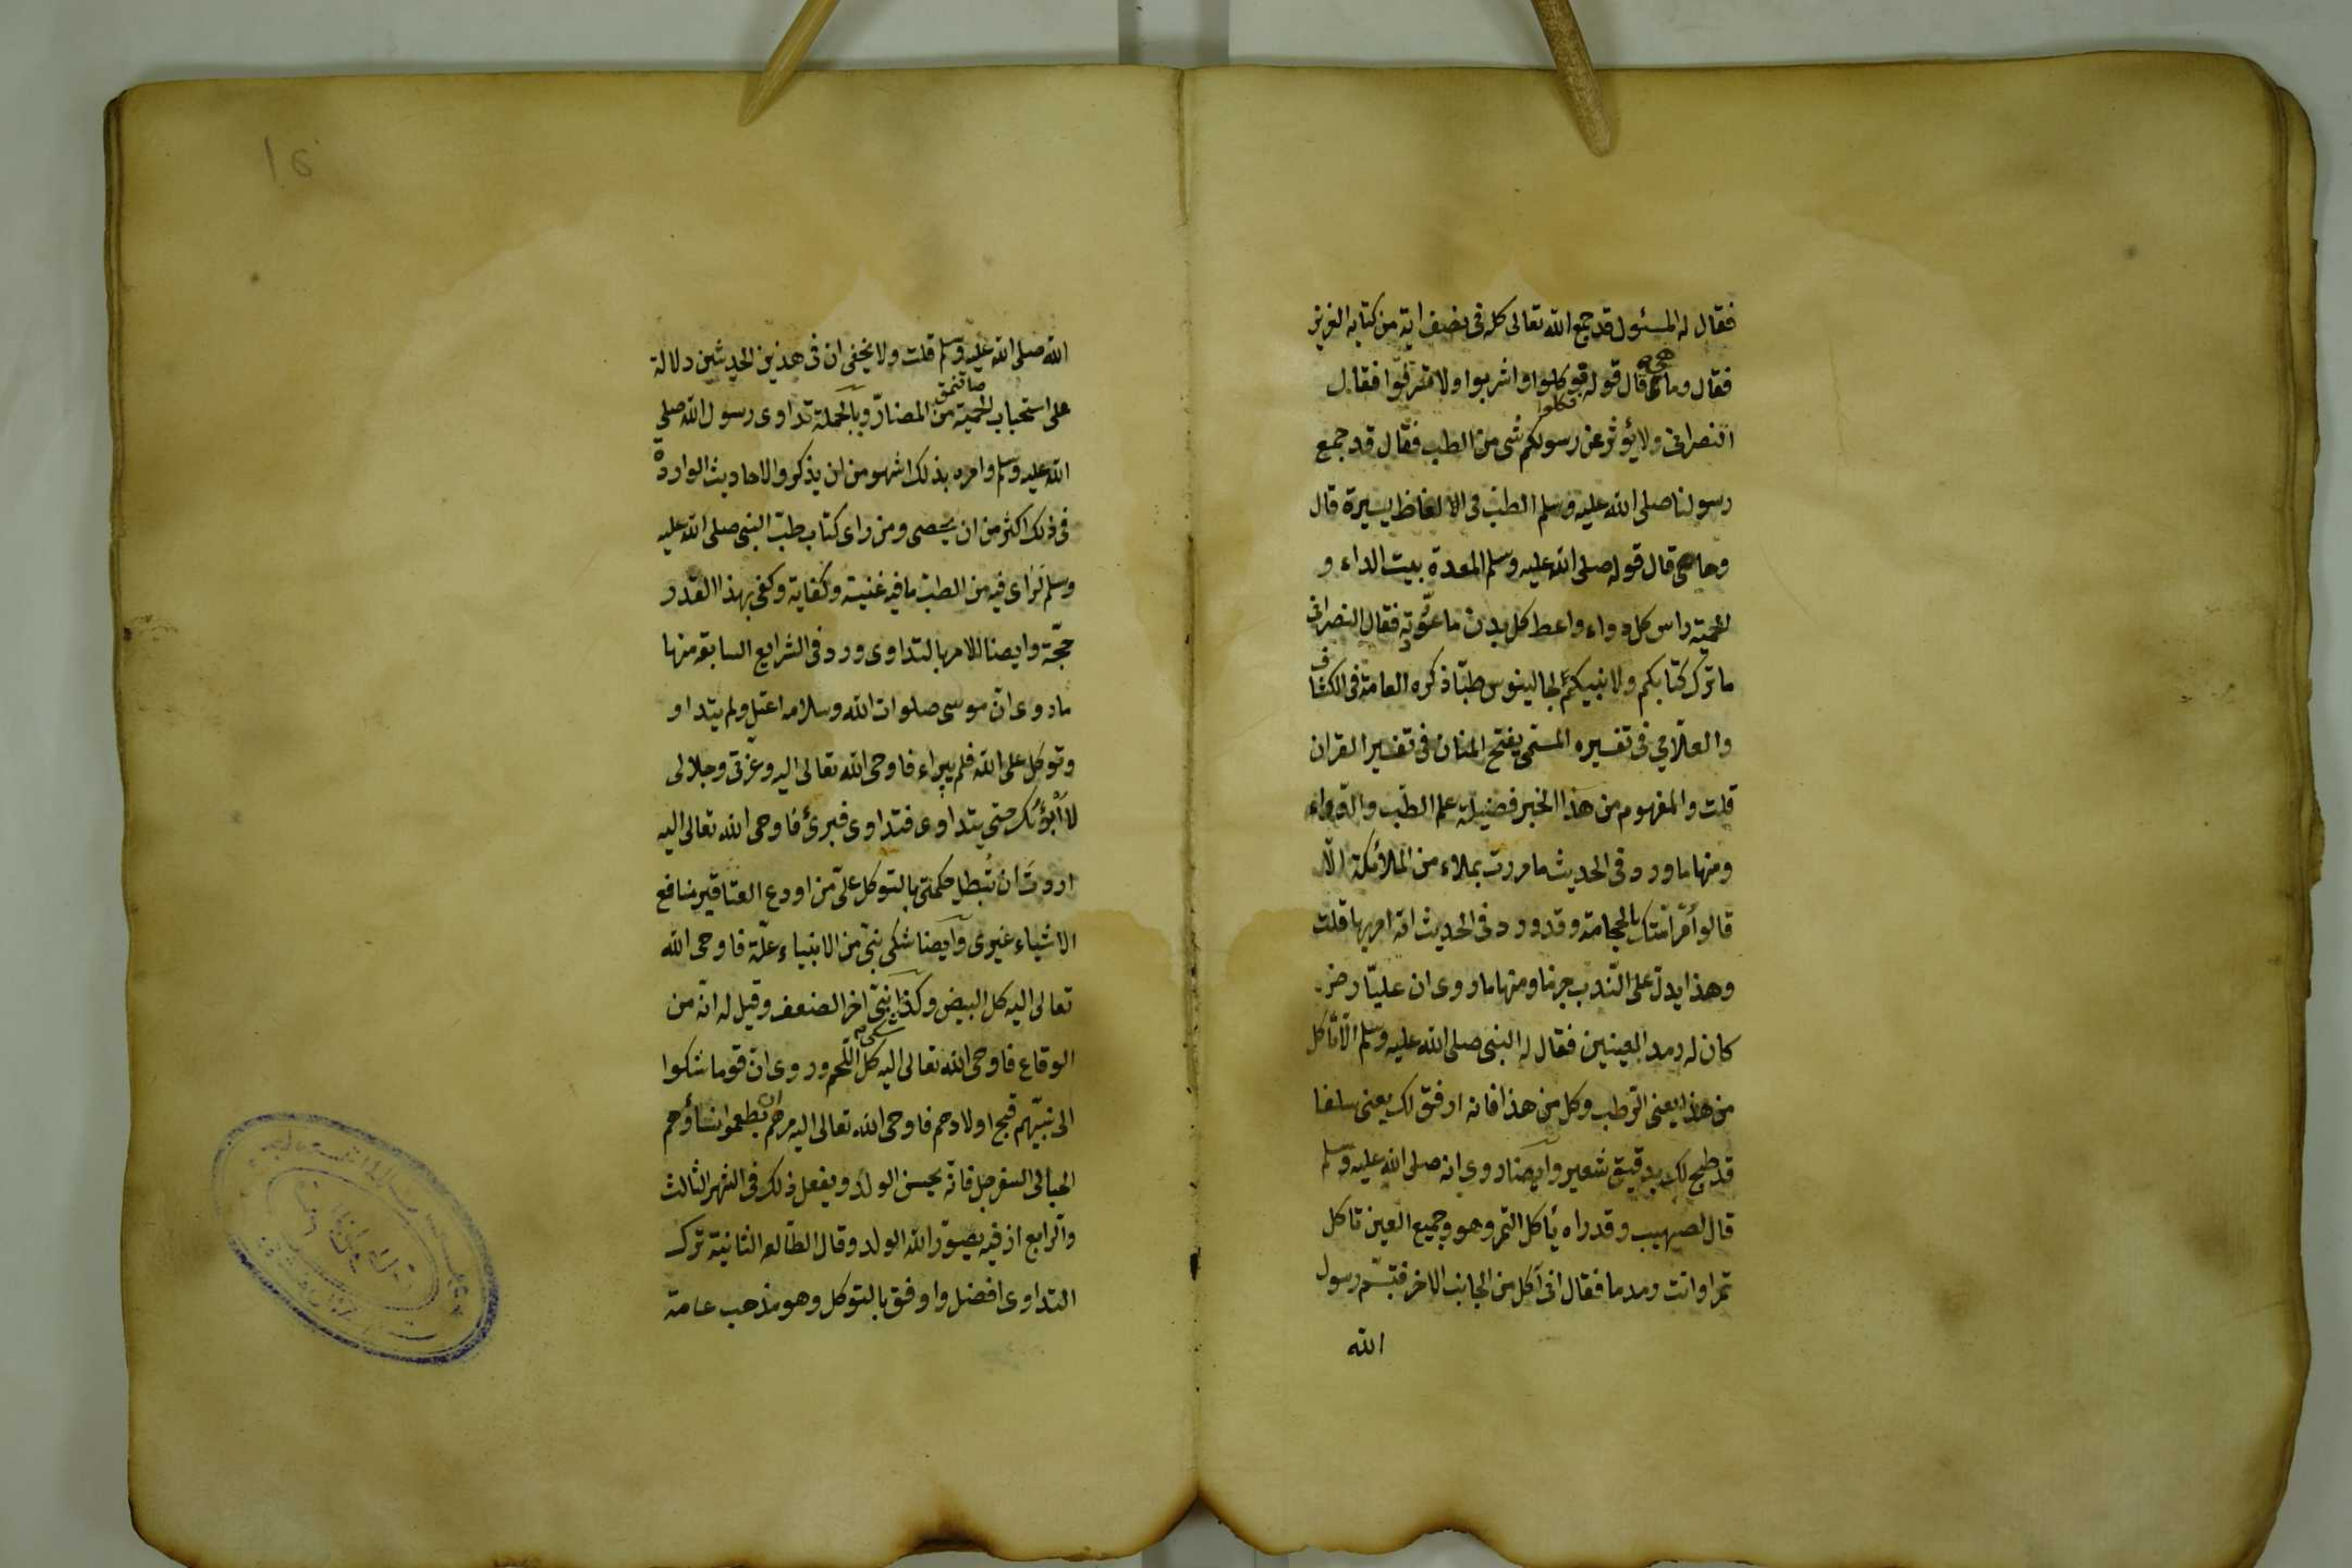 فقال له المسئول قد جمع الله تعالى كله فى نصف اية من كتابه العزيز
فقال وما هى قال قوله تع كلوا واشربوا ولا تسرفوا فقال
النصرانى ولا يؤثر عن رسولكم شى من الطب فقال قد جمع
رسولنا صلى الله عليه وسلم الطب فى الالفاظ يسيرة قال
وما هى قال قوله صلى الله عليه وسلم المعدة بيت الداء و
الحمية راس كل دواء واعط كل بدن ما عوّدته فقال النصرانى
ما ترك كتابكم ولا نبيكم لجالينوس طبّا ذكره العلامة فى الكشاف
والعلّامي فى تفسيره المسمى بفتح المنان فى تفسير القران
قلت والمفهوم من هذا الخبر فضيلة علم الطب والدواء
ومنها ما ورد فى الحديث ما مررت بملاء من الملائكة الّا
قالوا مُر امّتك بالحجامة وقد ورد فى الحديث انه امر بها قلت
وهذا يدل على الندب جزما ومنها ما روى ان عليّا رضـ
كان له رمد العينين فقال له النبى صلى الله عليه وسلم الّا تأكل
من هذا يعنى الرطب وكل من هذا فانه اوفق لك يعنى سلقا
قد طبخ لك بدقيق شعير وايضا روى انه صلى الله عليه وسلم
قال لصهيب وقد راه يأكل التمر وهو وجيع العين تاكل
تمرا وانت رمد ما فقال انى آكل من الجانب الاخر فتبسّم رسول
الله
16
الله صلى الله عليه وسلم قلت ولا يخفى ان فى هذين الحديثين دلالة
على استحباب الحمية من المضارّ وبالجملة تداوى رسول الله صلي
الله عليه وسلم وامره بذلك اشهر من ان يذكر والاحاديث الواردة
فى ذلك اكثر من ان يحصى ومن راى كتاب طبّ النبى صلى الله عليه
وسلم لراى فيه من الطب ما فيه غنية وكفاية وكفى بهذا القدر
حجّة وايضا للامر بالتداوى ورود فى الشرايع السابقة منها
ما روى ان موسى صلوات الله وسلامه اعتل ولم يتداو
وتوكل على الله فلم يبراء فاوحى الله تعالى اليه وعزّتى وجلالى
لا أبرؤنك حتى يتداوى فتداوى فبرئ فاوحى الله تعالى اليه
اردت ان تُبطل حكمتى بالتوكل علىّ من اودع العقاقير منافع
الاشياء غيرى وايضا شكى نبىّ من الانبياء علّة فاوحى الله
تعالى اليه كل البيض وكذا نبىّ اخر الضعف وقيل له انه من
الوقاع فاوحى الله تعالى اليه كل اللحم وروى ان قوما شكوا
الى نبيّهم قبح اولادهم فاوحى الله تعالى اليه مرهم ان يطعموا نساؤهم
الحبالى السفرجل فانه يحسن الولد ويفعل ذلك فى الشهر الثالث
والرابع اذ فيه يصوّر الله الولد وقال الطائفة الثانية ترك
التداوى افضل واوفق بالتوكل وهو مذهب عامة